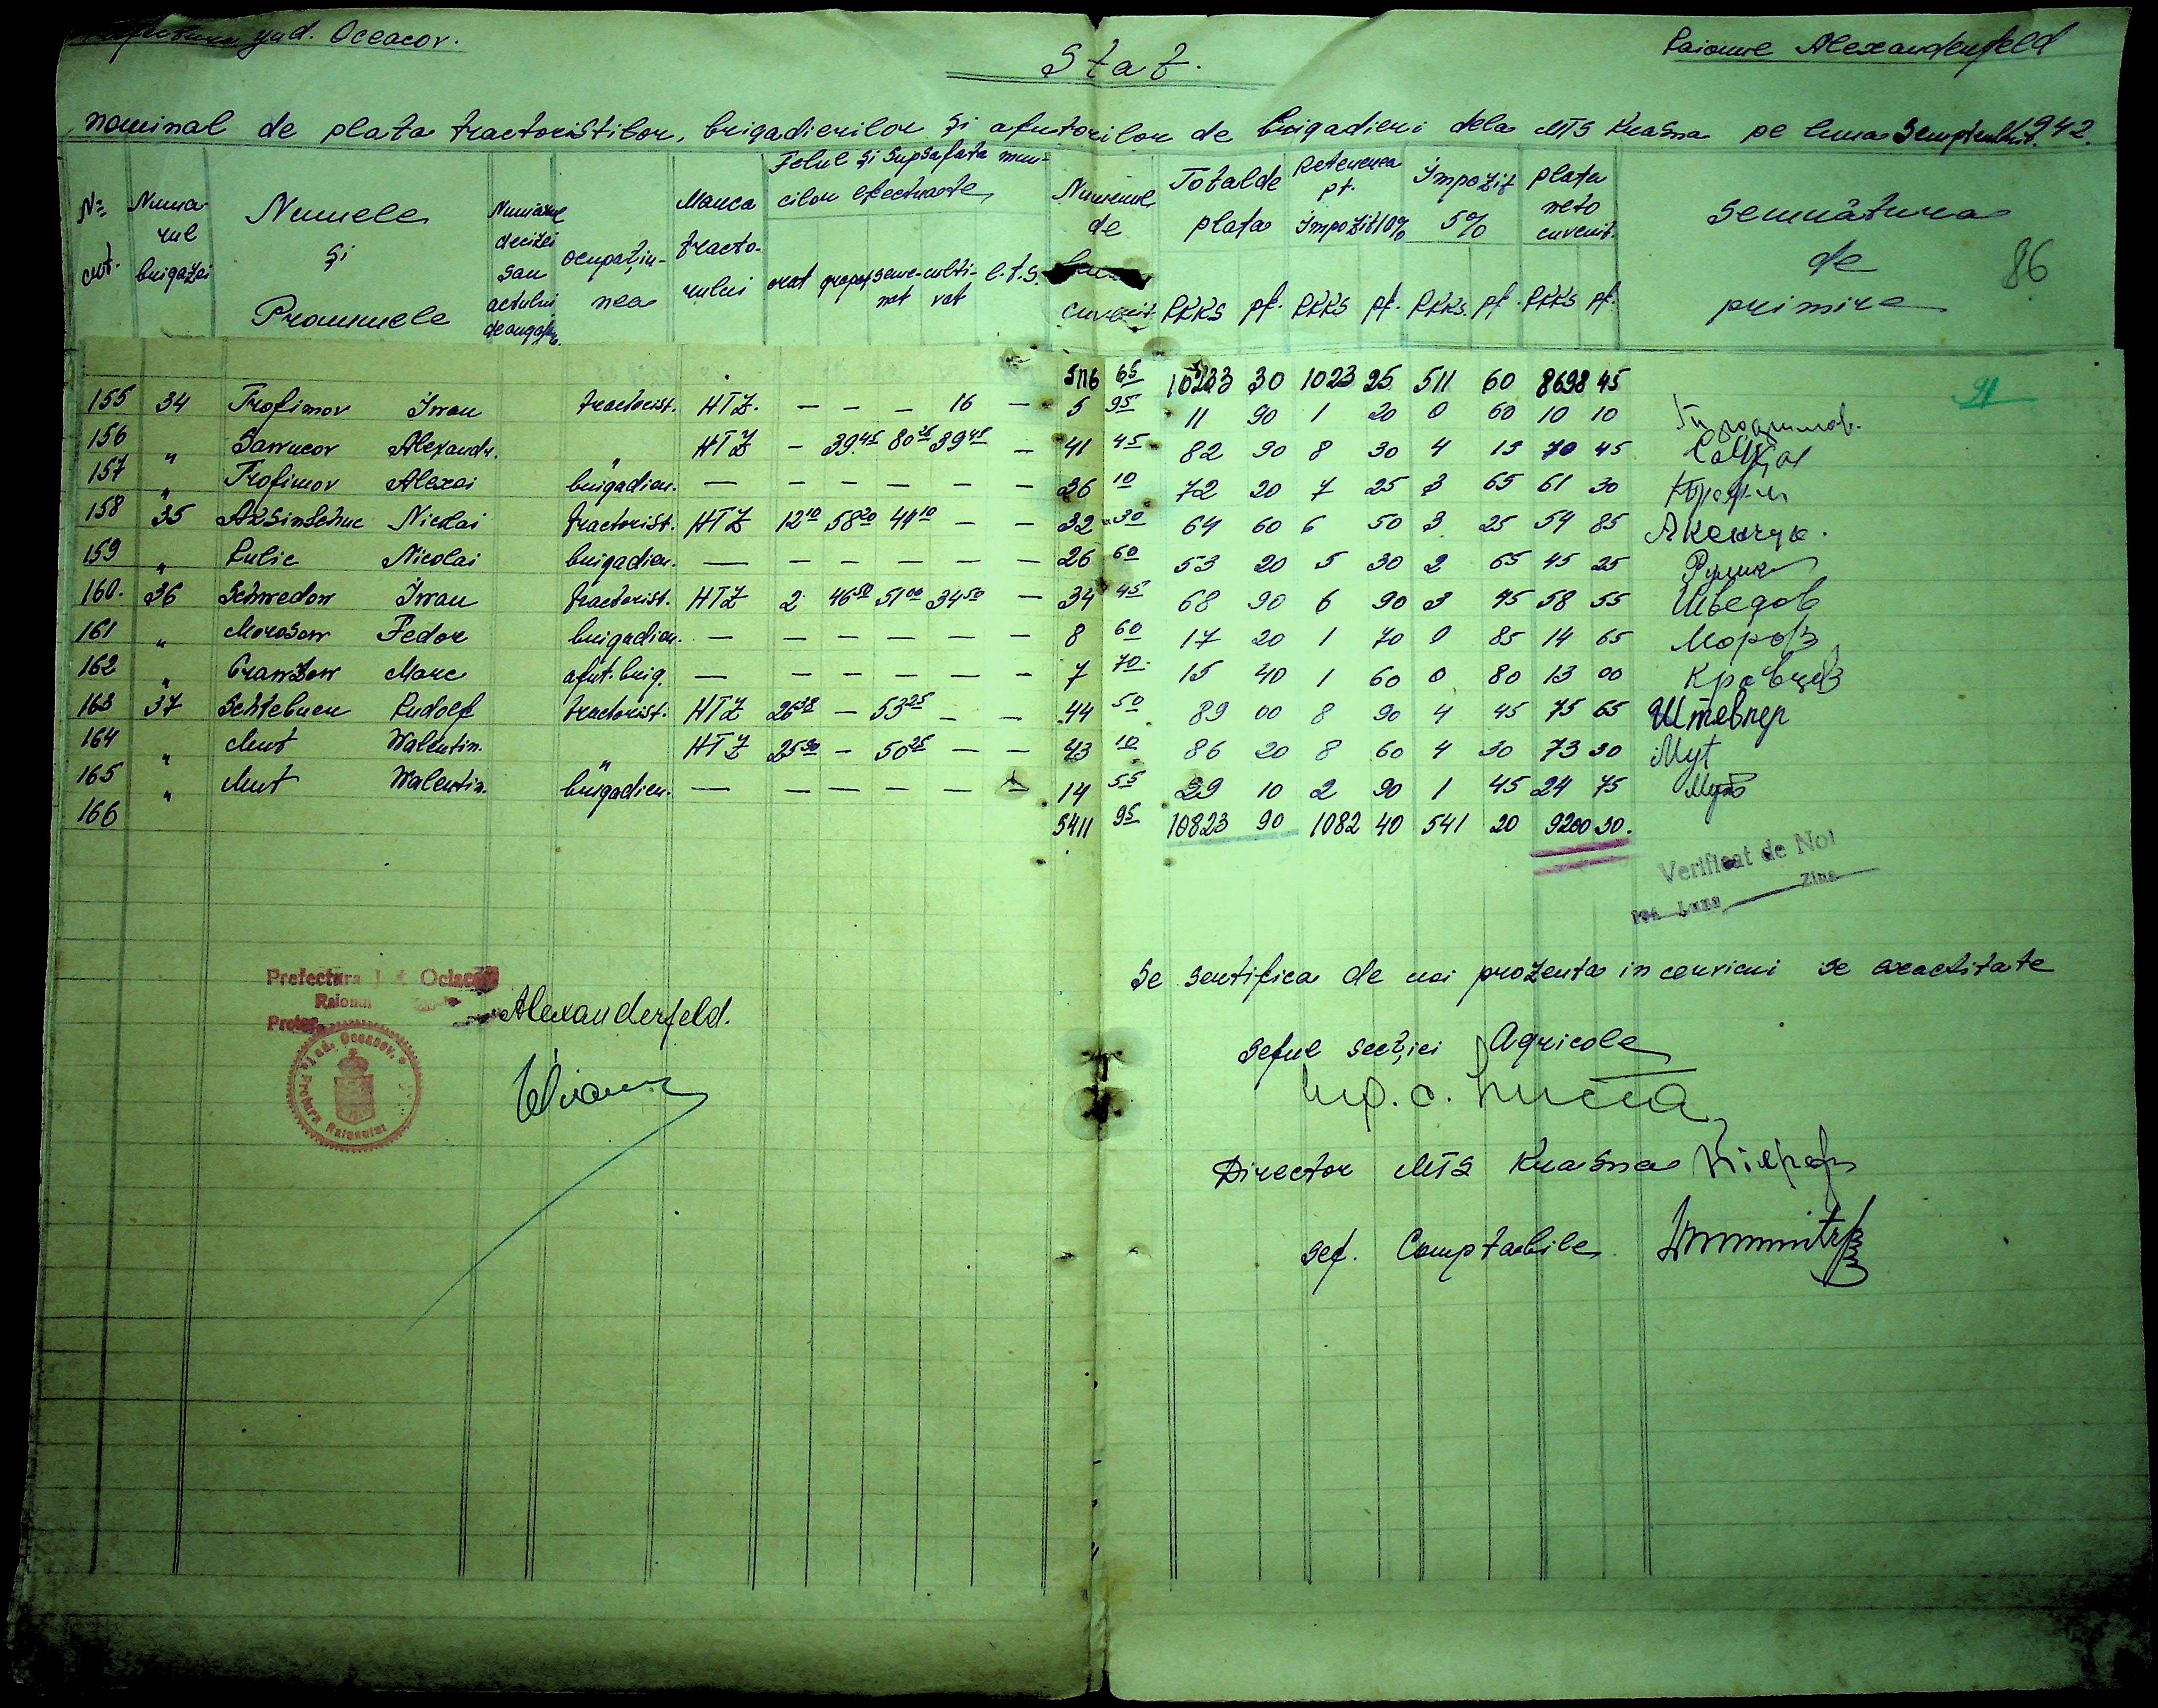 jud. Oceacov.
Stat.
Raionul Alexanderfeld
nominal de plata tractoristilor, brigadierilor și ajutorilor de brigadieri dela MTS Krasna pe luna Semptembrie 1942.
Nr. crt.
Numarul brigăzei
Numele și Pronumele
Numărul deciziei sau actului de angajare
ocupațiunea
Marca tractorului
Felul și supsafata muncilor efectuate
arat grapat semenat cultivat e.t.s.
Numerul de cuvenit.
Total de plata RKKS pf.
Retenerea pt. impozit 10% RKKS pf.
Impozit 5% RKKS. pf.
plata neto cuvenit. RKKS pf.
Semnătura de primire
86
5116 65 10233 30 1023 25 511 60 8698 45
91
155 34 Trofimov Iwan tractorist. HTZ. — — — 16 — 5 95 11 90 1 20 0 60 10 10
156 " Sawucov Alexandr. " HTZ — 39 45 80 25 39 45 — 41 45 82 90 8 30 4 15 70 45
157 " Trofimov Alexei brigadier. — — — — — — 36 10 72 20 7 25 3 65 61 30
158 35 Aksintschuc Nicolai tractorist. HTZ 12 10 58 20 44 10 — — 32 30 64 60 6 50 3 25 54 85
159 " Rulic Nicolai brigadier. — — — — — — 26 60 53 20 5 30 2 65 45 25
160. 36 Schwedow Iwan tractorist. HTZ 2 46 50 51 00 34 50 — 34 45 68 90 6 90 3 45 58 55 Шведов
161 " Morosow Fedor brigadier. — — — — — — 8 60 17 20 1 70 0 85 14 65 Мороз
162 " Crawzow Marc ajut. brig. — — — — — — 7 70 15 40 1 60 0 80 13 00 Кравцов
163 37 Schtebner Rudolf tractorist. HTZ 26 38 — 53 25 — — 44 50 89 00 8 90 4 45 75 65 Штевнер
164 " Mut Walentin. " HTZ 25 30 — 50 25 — — 43 10 86 20 8 60 4 30 73 30 Мут
165 " Mut Walentin. brigadier. — — — — — — 14 55 29 10 2 90 1 45 24 75 Мут
166 5411 95 10823 90 1082 40 541 20 9200 30.
Verificat de Noi
194 Luna Zina
Se sertifica de noi prozenta in cervicui se exactitate
Prefectura Jud. Oceacov
Raionul Alexanderfeld.
Pretor
Jud. Oceacov. Pretura Raionului
Seful secției Agricole
Ing. C.
Director MTS Krasna
Sef. Comptabile